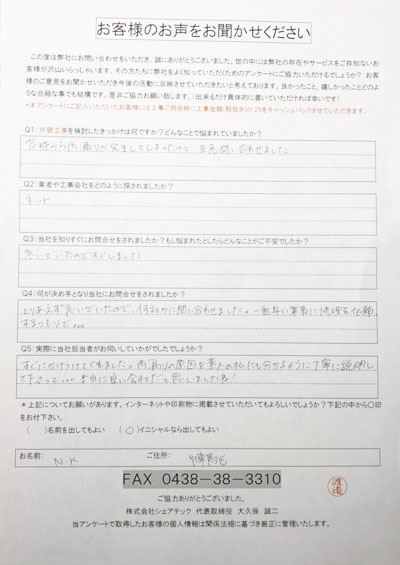 お客様のお声をお聞かせください
この度は弊社にお問い合わせをいただき、誠にありがとうございました。世の中には弊社の存在やサービスをご存知ないお
客様が沢山いらっしゃいます。その方たちに弊社をよく知っていただくためのアンケートにご協力いただけるでしょうか？ お客
様のご意見をお聞かせいただき今後の活動に反映させていただきたいと考えております。良かったこと、嬉しかったことどのよ
うな些細な事でも結構です。是非ご協力お願い致します。（出来るだけ具体的に書いていただければ幸いです）
*本アンケートにご記入いただいたお客様には工事ご用命時に工事金額(税抜き)の2%をキャッシュバックさせていただきます。
Q1：外壁工事を検討したきっかけは何ですか？どんなことで悩まれていましたか？
窓枠から雨漏りが発生してしまったので 至急問い合わせました
Q2：業者や工事会社をどのように探されましたか？
ネット
Q3：当社を知りすぐにお問合せをされましたか？もし悩まれたとしたらどんなことがご不安でしたか？
急いでいたのですぐしました
Q4：何が決め手となり当社にお問合せをされましたか？
とりあえず急いでいたので、何社かに問い合わせました。一番早い業者に修理を依頼
するつもりで…
Q5：実際に当社担当者がお伺いしていかがでしたでしょうか？
すぐにかけつけてくれました。雨漏りの原因を素人の私にも分かるように丁寧に説明し
て下さって… 本当に良い会社だと思いましたね!
＊上記についてお願いがあります。インターネットや印刷物に掲載させていただいてもよろしいでしょうか？下記の中から〇印
をお付下さい。
（ ）名前を出してもよい （〇）イニシャルなら出してもよい
お名前： N.K ご住所： 練馬区
FAX 0438-38-3310
ご協力ありがとうございました。
株式会社シェアテック 代表取締役 大久保 誠二
当アンケートで取得したお客様の個人情報は関係法規に基づき厳正に管理いたします。
渡邉